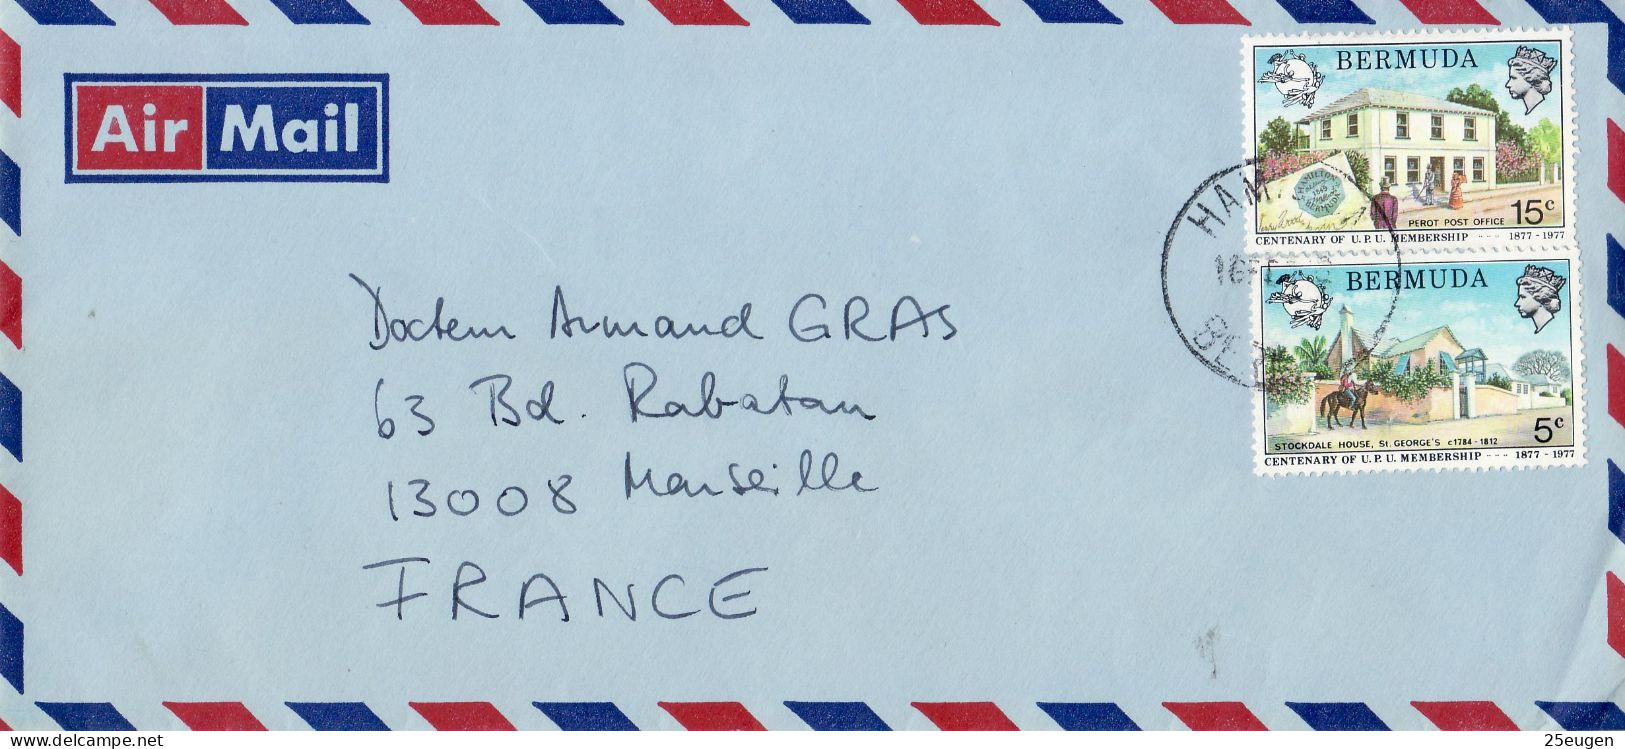 Air Mail
BERMUDA
HAMILTON
1849
BERMUDA
PEROT POST OFFICE 15c
CENTENARY OF U.P.U. MEMBERSHIP --- 1877-1977
HAM
16
BERMUDA
STOCKDALE HOUSE, St. GEORGE'S c1784-1812 5c
CENTENARY OF U.P.U. MEMBERSHIP --- 1877-1977
Docteur Armand GRAS
63 Bd. Rabatau
13008 Marseille
FRANCE
delcampe.net
25eugen